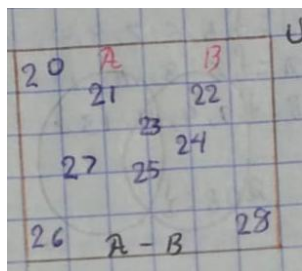 U
20 A B
21 22
23
24
27 25
26 A - B 28